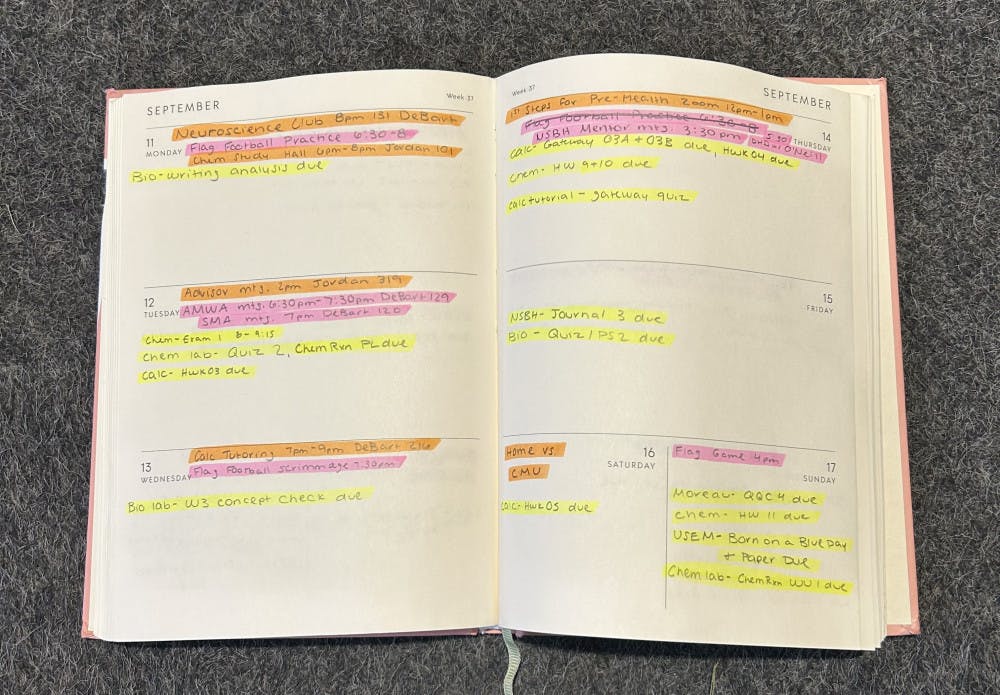 SEPTEMBER
Week 37
Neuroscience Club 8pm 131 DeBart
11
MONDAY
Flag Football Practice 6:30-8
Chem Study Hall 6pm-8pm Jordan 101
Bio-writing analysis due
Advisor mtg. 2pm Jordan 319
12
TUESDAY
AMWA mtg. 6:30pm-7:30pm DeBart 129
SMA mtg. 7pm DeBart 120
Chem-Exam 1 8-9:15
Chem lab- Quiz 2, ChemRxn PL due
Calc- HWK03 due
Calc Tutoring 7pm-9pm DeBart 216
13
WEDNESDAY
Flag Football scrimmage 7:30pm
Bio lab- W3 concept check due
Week 37
SEPTEMBER
1st Steps for Pre-Health Zoom 12pm-1pm
Flag Football Practice 6:30-8
14
THURSDAY
NSBH Mentor mtg. 3:30pm
5:30
O'Neill
Calc- Gateway 03A + 03B due, HWK04 due
Chem- HW 9+10 due
Calc tutorial- gateway quiz
15
FRIDAY
NSBH- Journal 3 due
Bio- Quiz/PS2 due
Home vs.
CMU
16
SATURDAY
Calc-HWK05 due
Flag Game 4pm
17
SUNDAY
Moreau- QQC4 due
Chem- HW 11 due
USEM- Born on a Blue Day
+ Paper Due
Chem lab- ChemRxn WU1 due